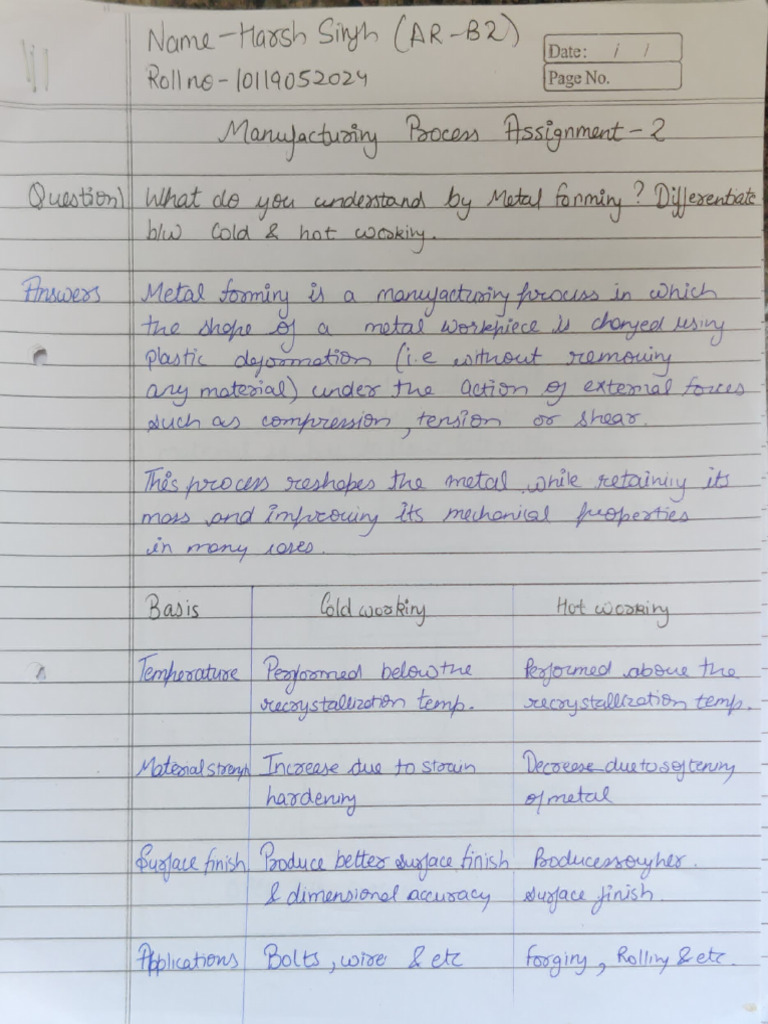 Name - Harsh Singh (AR-B2)
Date: / /
Roll no - 10119052024
Page No.
Manufacturing Process Assignment - 2
Question1 What do you understand by Metal forming? Differentiate
b/w Cold & hot working.
Answers Metal forming is a manufacturing process in which
the shape of a metal workpiece is changed using
plastic deformation (i.e without removing
any material) under the action of external forces
such as compression, tension or shear.
This process reshapes the metal while retaining its
mass and improving its mechanical properties
in many cases.
Basis Cold working Hot working
Temperature Performed below the Performed above the
recrystallization temp. recrystallization temp.
Material strength Increase due to strain Decrease due to softening
hardening of metal
Surface finish Produce better surface finish Produces rougher.
& dimensional accuracy surface finish.
Applications Bolts, wire & etc Forging, Rolling & etc.